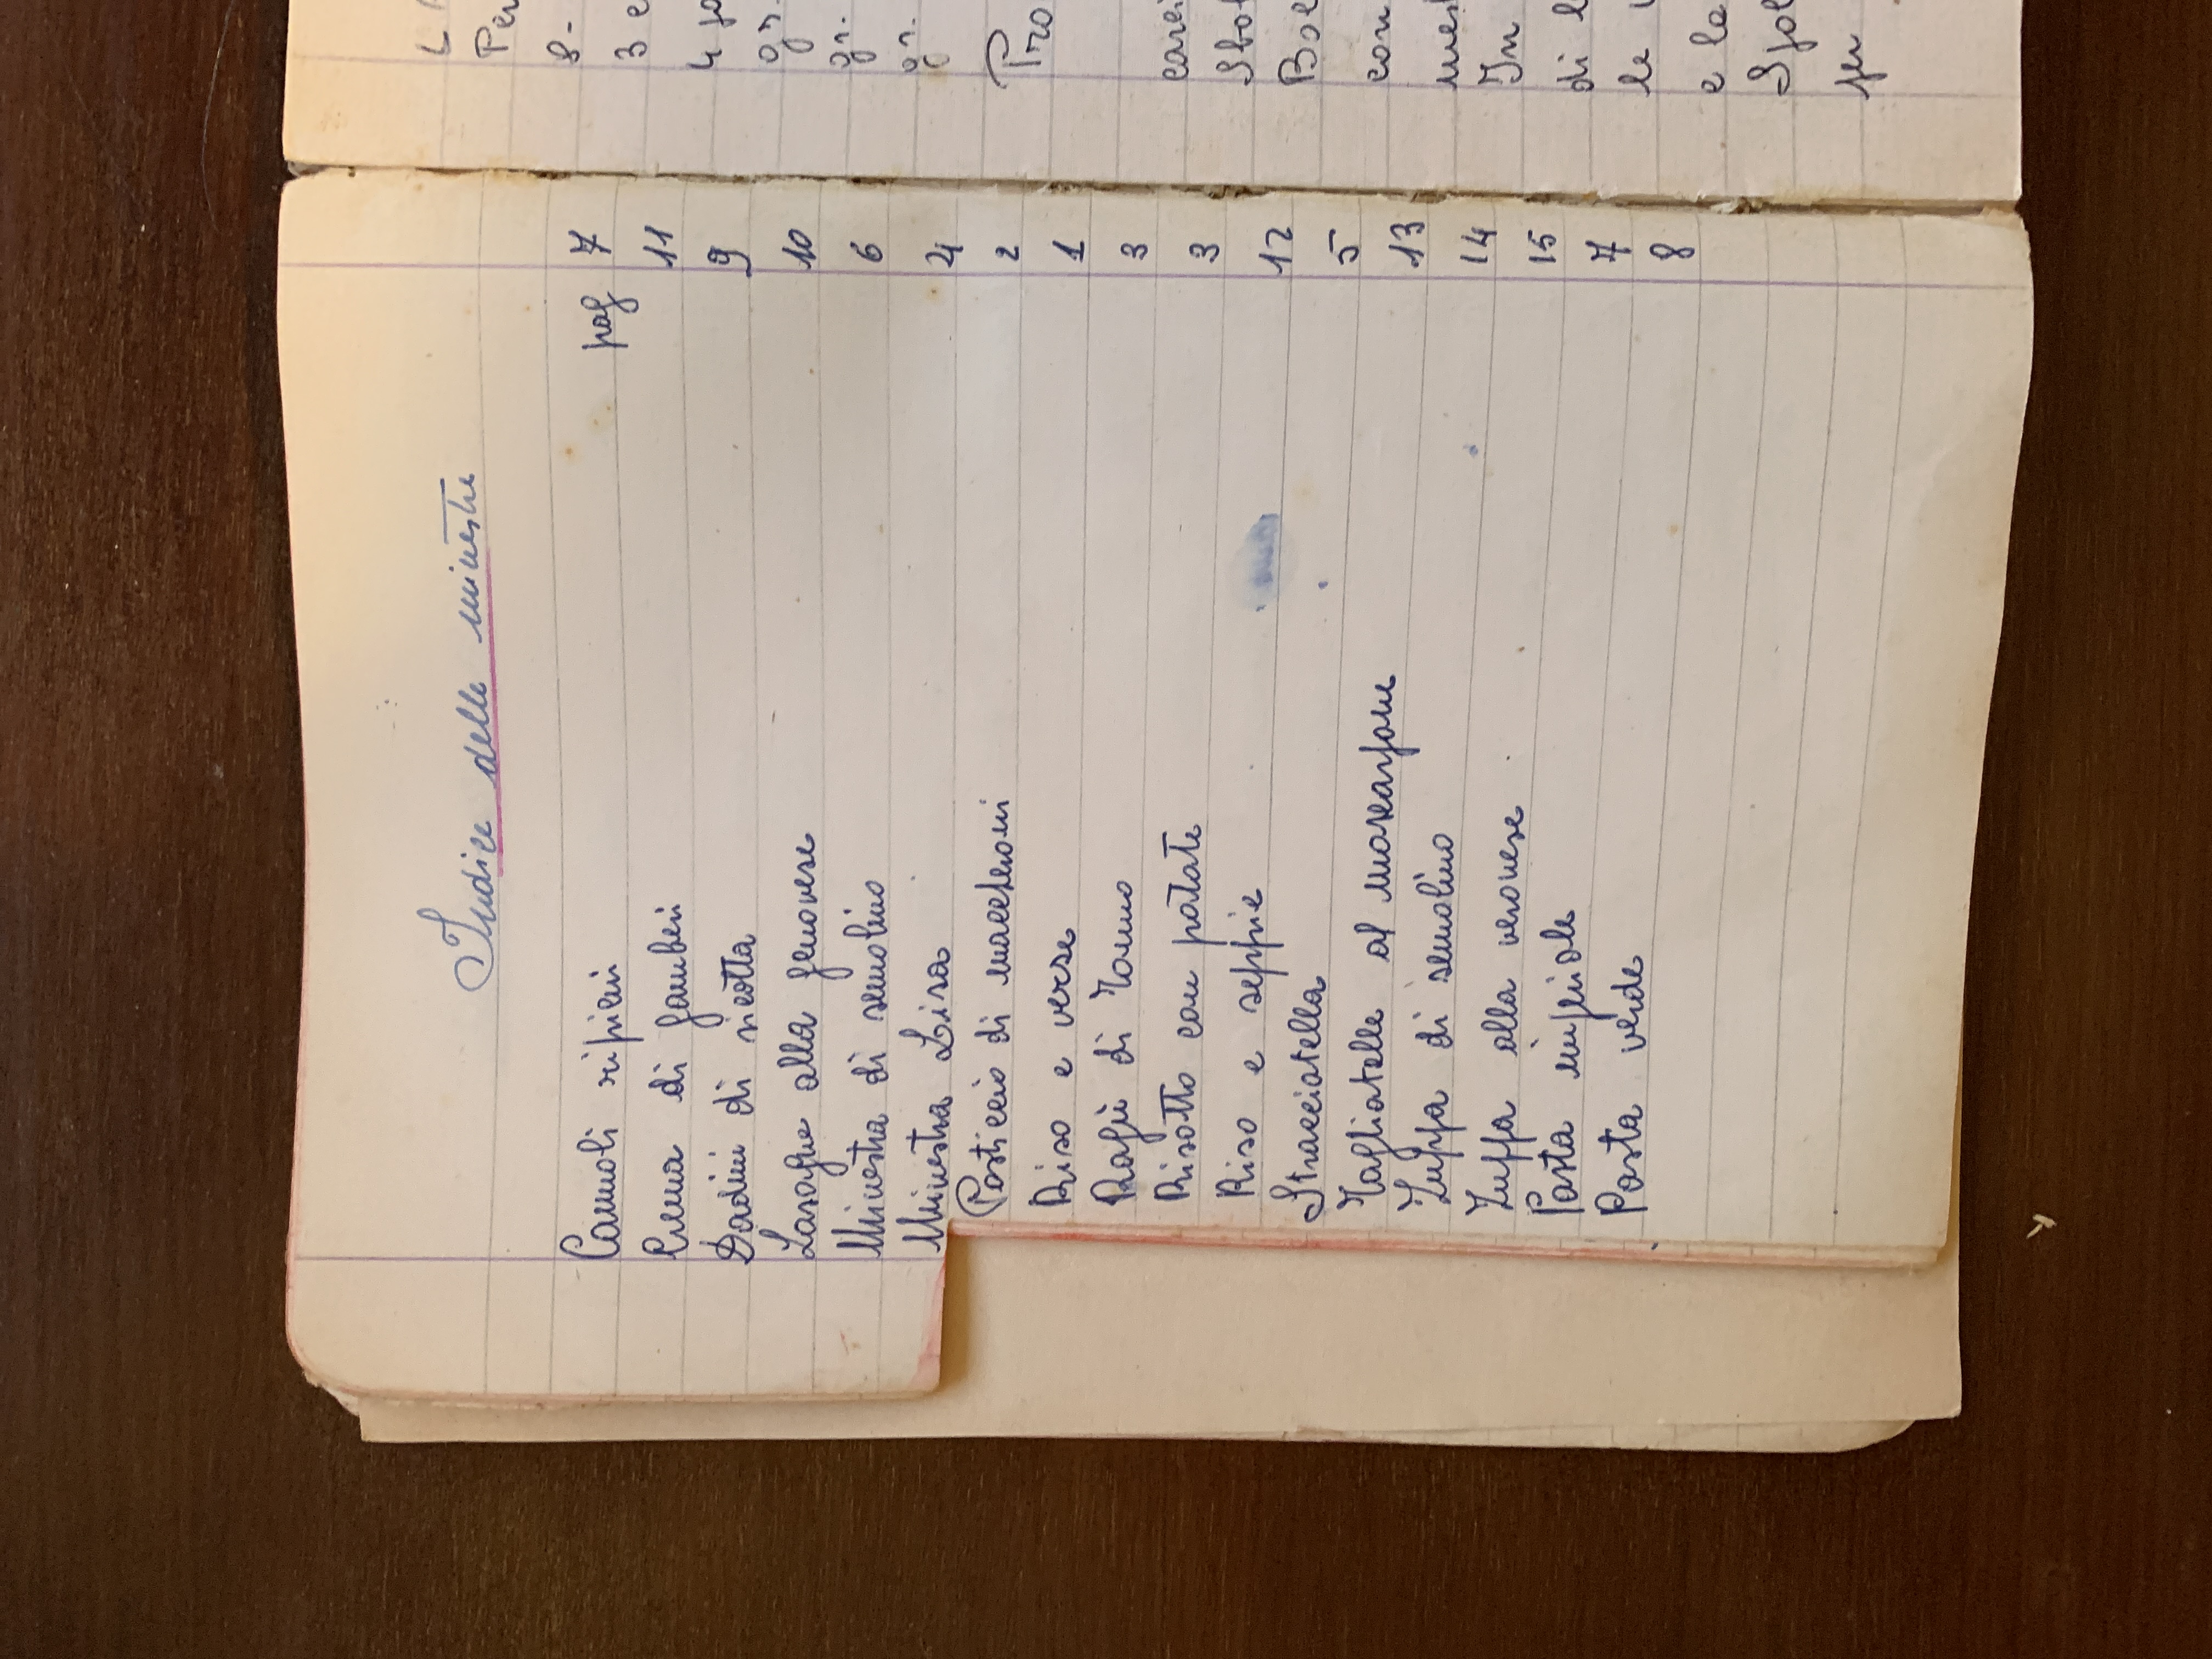 Indice delle minestre
Cannoli ripieni pag 7
Crema di gamberi 11
Dadini di ricotta 9
Lasagne alla genovese 10
Minestra di semolino 6
Minestra Lisa 4
Pasticcio di maccheroni 2
Riso e verse 1
Ragù di Tonno 3
Risotto con patate 3
Riso e seppie 12
Stracciatella 5
Tagliatelle al mascarpone 13
Zuppa di semolino 14
Zuppa alla veronese 15
Pasta imperiale 7
Pasta verde 8
Per
8-
3 c
gr.
gr.
gr.
Pro
carci
con
In
di l
le
e la
per